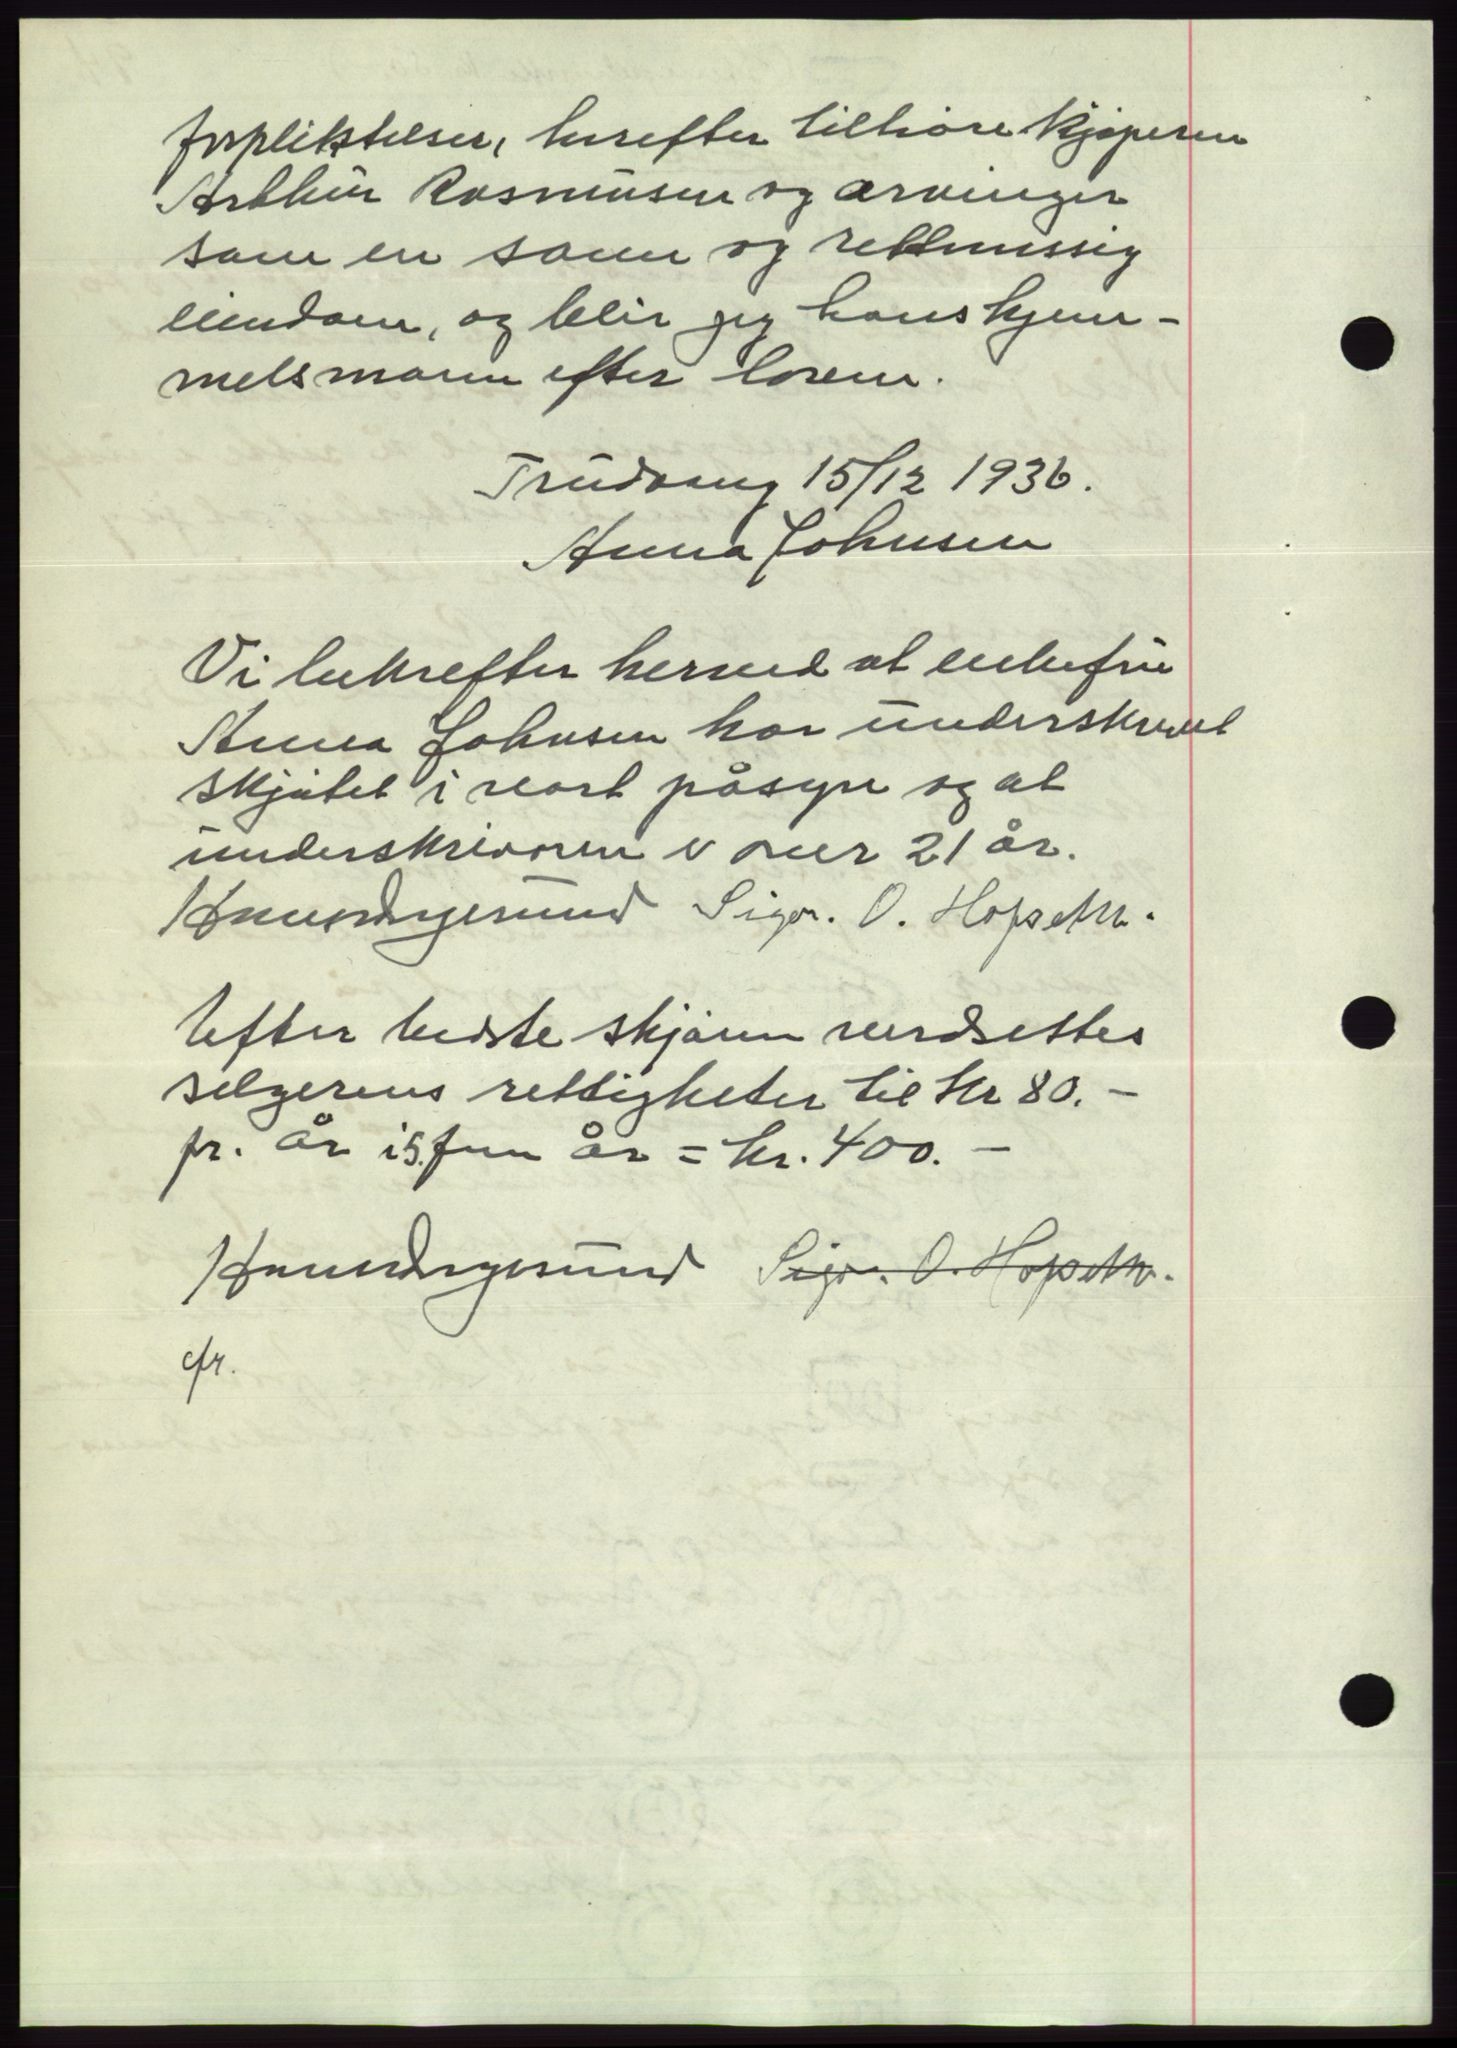 forpliktelser, herefter tilhøre kjøperen
Arthur Rasmusen og arvinger
som en sann og rettmessig
eiendom, og blir jeg hans hjem-
melsmann efter loven.
Trudvang 15/12 1936.
Anna Johnsen
Vi bekrefter herved at enkefru
Anna Johnsen har underskrevet
skjøtet i vort påsyn og at
underskriveren er over 21 år.
Sigv. O. Hopseth.
Efter bedste skjønn verdsettes
selgerens rettigheter til kr 80.-
pr. år i 5. fem år = kr. 400.-
Sigv. O. Hopseth.
cfr.